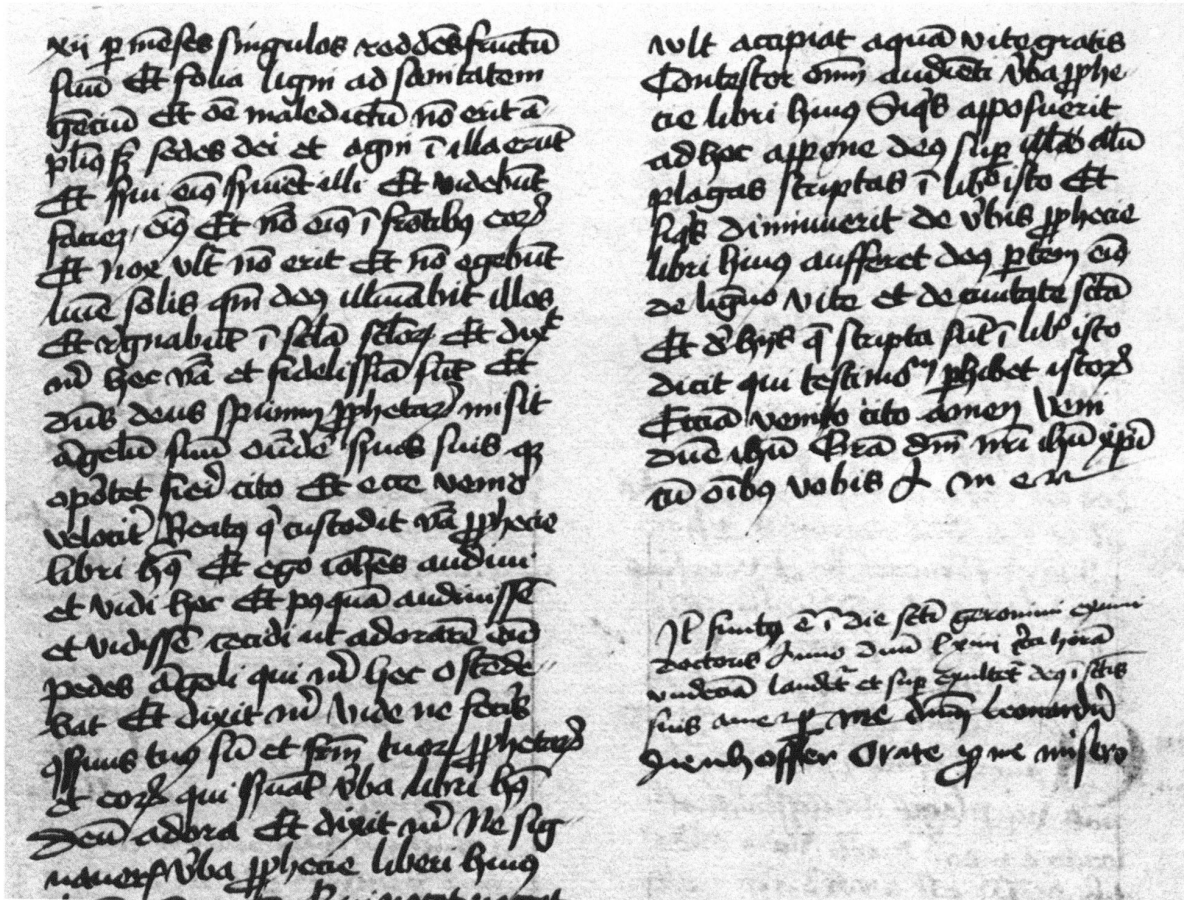 xij p̄ mēses singulos reddēs fructū
suū Et folia ligni ad sanitatem
gēciū Et oē maledictū nō erit ā
pliꝰ sꝫ sedes dei et agni ī illa erūt
Et ſſui eiꝰ ſſuiēt illi Et videbūt
faciem eiꝰ Et nō eiꝰ ī frōtibꝰ eoꝝ
Et nox vlt̄ nō erit Et nō egebūt
lumē solis qm̄ deꝰ illūabit illos
Et regnabūt ī sc̄la sc̄loꝝ Et dixᵗ
m̄ hec v̄ba et fidelissīa sūt Et
dūs deus sp̄uum ꝓphetaꝝ misit
āgelū suū oñde ſſuis suis q̄
opōtet fieri cito Et ecce venio
velocit̄ Beatꝰ q̄ custodit v̄ba ꝓphecie
libri hꝰ Et ego ioh̄es audiui
et vidi hec Et pꝰquā audiuissē
et vidissē cecidi ut adorarē an̄
pedes āgeli qui m̄ hec ostende
bat Et dixit m̄ Vide ne fecis̄
ꝯſſuus tuꝰ sū et fr̄m tuoꝝ ꝓphetaꝝ
et eoꝝ qui ſſuāt v̄ba libri hꝰ
deū adora Et dixit m̄ Ne sig
naueris v̄ba ꝓphecie liberi huiꝰ
vult accipiat aquā vite gratis
Contestor omī audiēti v̄ba ꝓphe
cie libri huiꝰ Siqͥs apposuerit
ad hec appone deꝰ suꝑ illū
plagas scriptas ī libͦ isto Et
siqͥs diminuerit de v̄bis ꝓphecie
libri huiꝰ aufferet deꝰ ꝑtem eiꝰ
de ligno vite et de ciuitate sctā
Et de hijs q̄ scripta sūt ī libͦ isto
dicit qui testimoⁿiū ꝑhibet istoꝝ
Etciā venio cito amen Veni
dn̄e ihū Gr̄a dn̄i nr̄i ihū xp̄i
cū oībꝰ vobis A m e n
finitꝰ ē ī die scti geronimi eximii
doctoris Anno dn̄i lxiiii hora
vndecīa laudet̄ et suꝑ exultet̄ deꝰ ī sctis
suis amen ꝑ me dn̄m leonardū
Orate ꝓ me misero